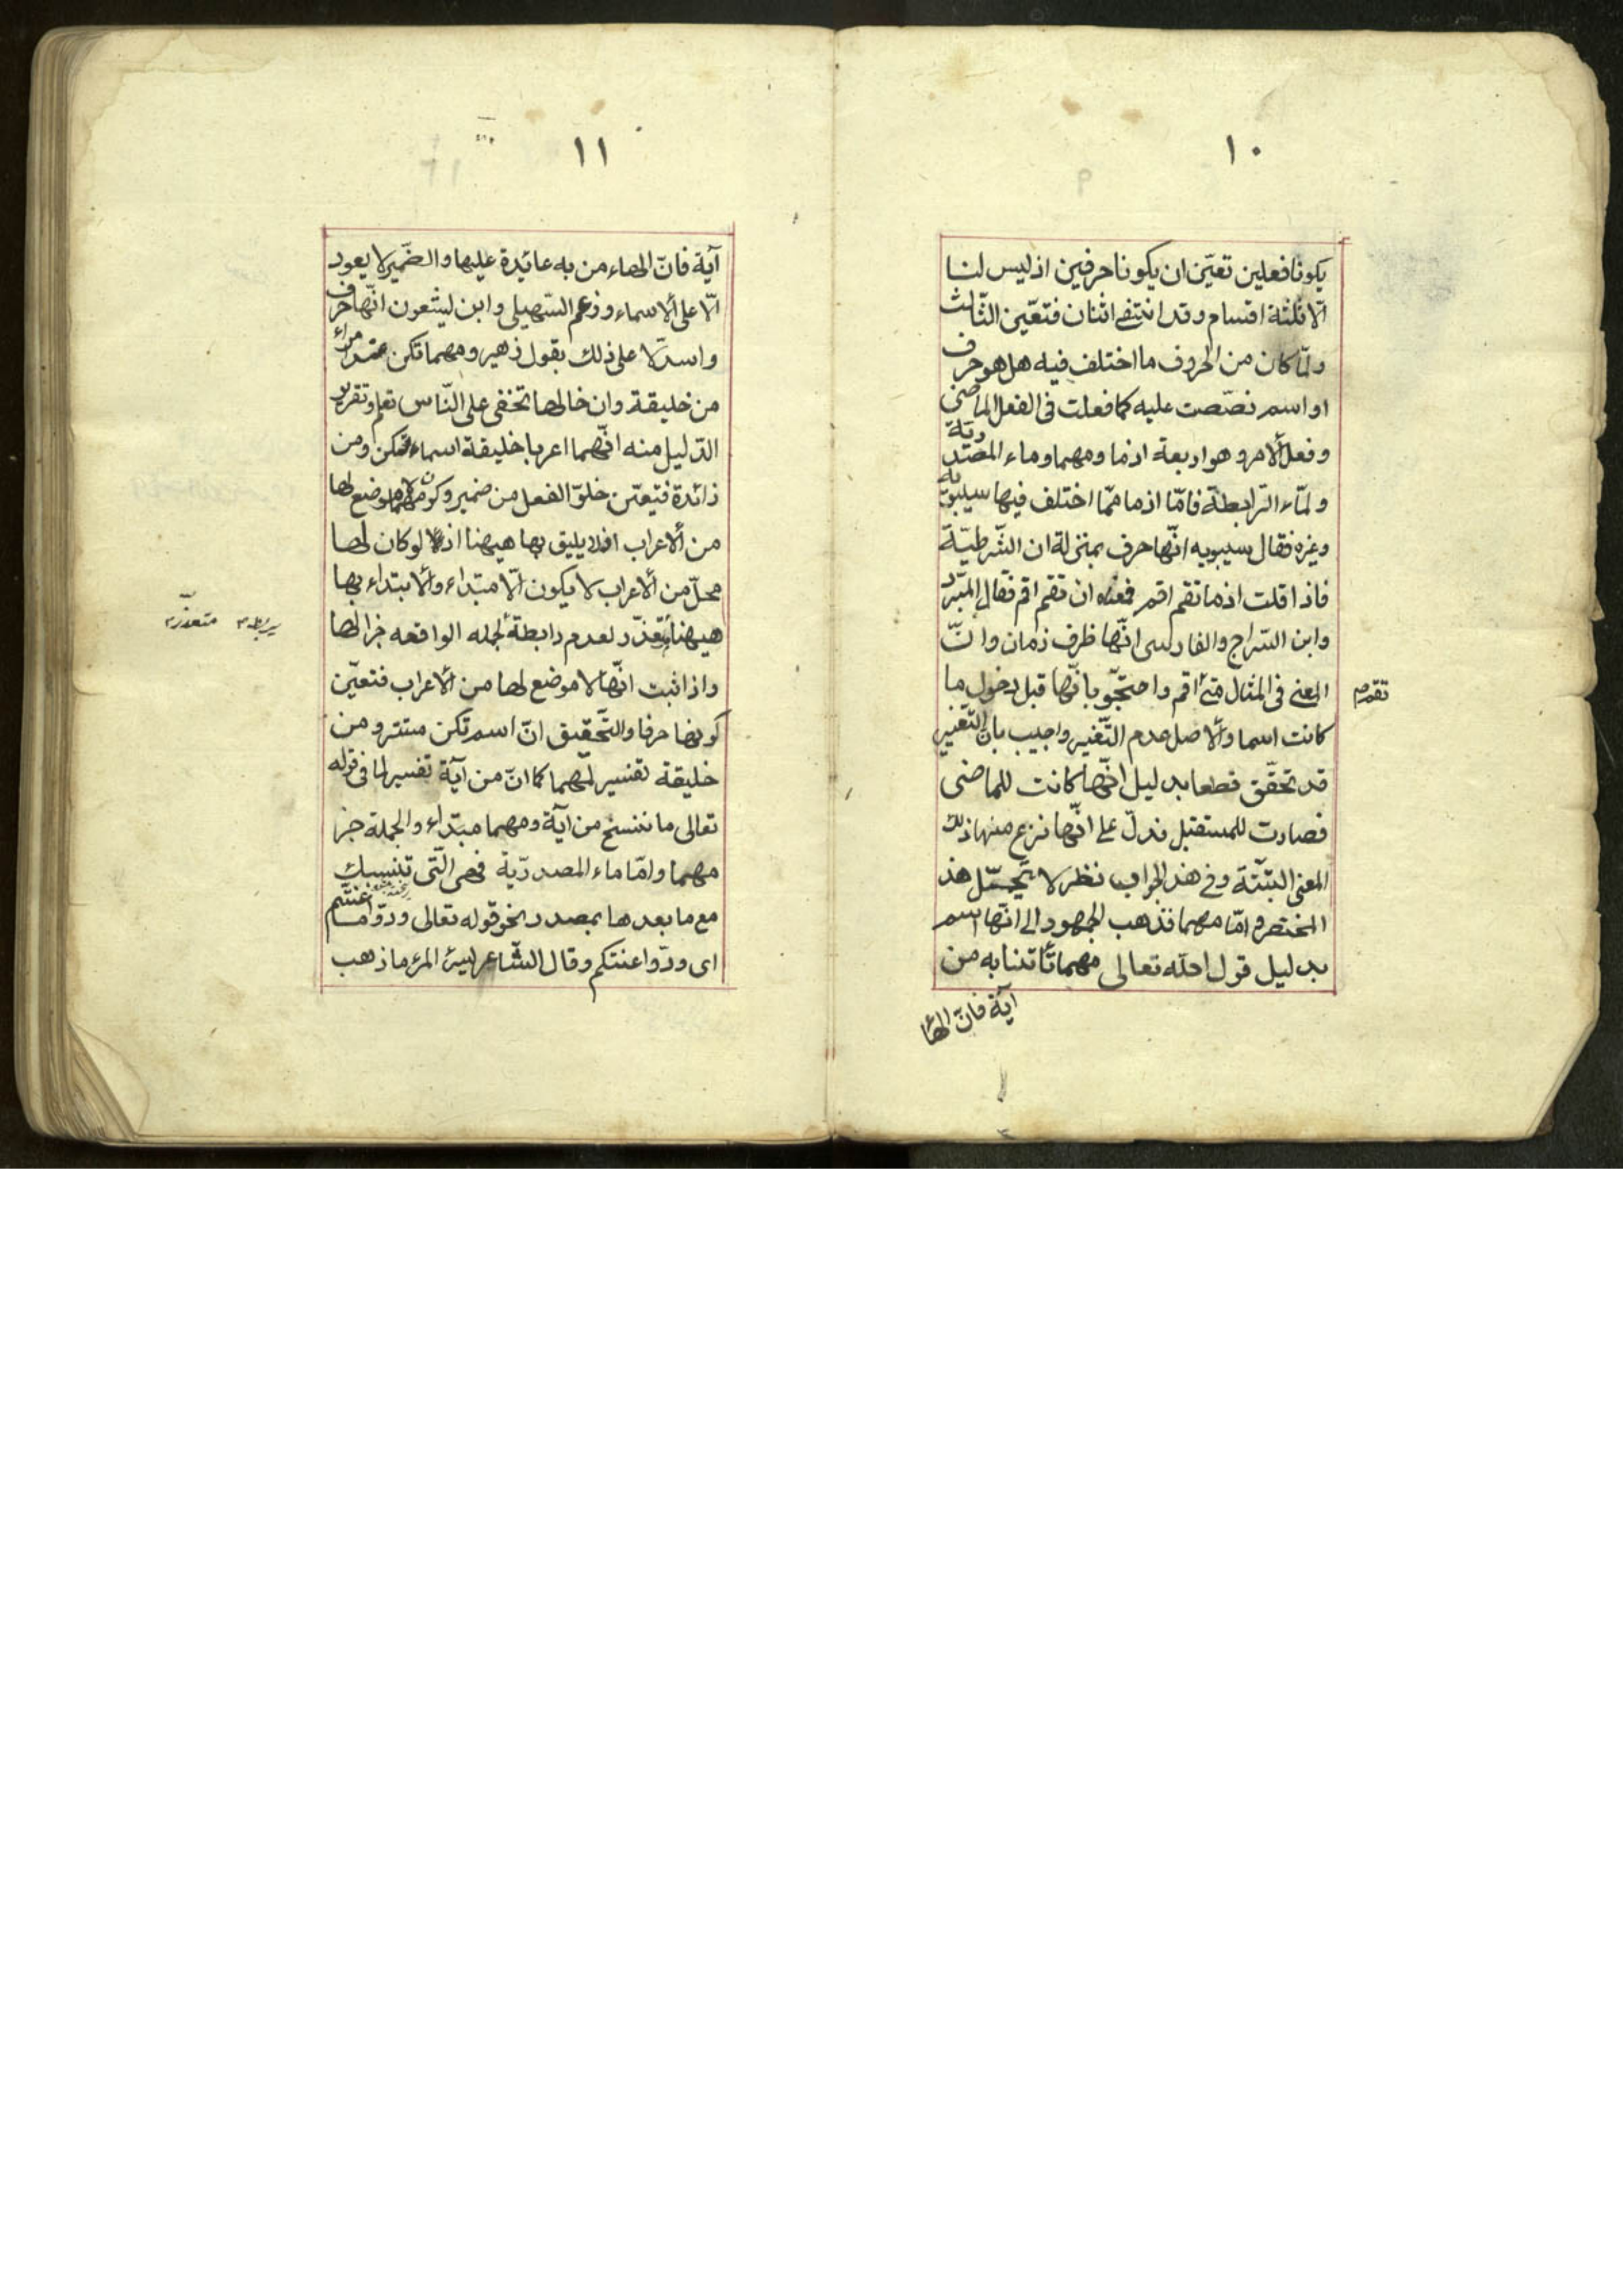 ١٠
يكونا فعلين تعيّن ان يكونا حرفين اذ ليس لنا
الّا ثلثة اقسام وقد انتفى اثنان فتعيّن الثّالث
ولمّا كان من الحروف ما اختلف فيه هل هو حرف
او اسم نصّصت عليه كما فعلت فى الفعل الماضى
وفعل الامر وهو اربعة اذما ومهما وماء المصدريّة
ولمّاء الرّابطة فامّا اذما ممّا اختلف فيها سيبويه
وغيره فقال سيبويه انّها حرف بمنزلة ان الشّرطيّة
فاذا قلت اذما تقم اقم فمعناه ان تقم اقم فقال المبرّد
وابن السّراج والفارسى انّها ظرف زمان وانّ
المعنى فى المثال متى اقم واحتجّو بانّها قبل دخول ما
تقم
كانت اسما والاصل عدم التّغيير واجيب بان التّغيير
قد تحقّق قطعا بدليل انّها كانت للماضى
فصارت للمستقبل فدلّ على انّها نزع منها ذلك
المعنى البتّة وفى هذ الجواب نظر لا يحتمل هذ
المختصر وامّا مهما فذهب الجمهور الى انّها اسم
بدليل قول الله تعالى مهما تأتنا به من
آية فانّ الهاء
١١
آية فانّ الهاء من به عايدة عليها والضّمير لا يعود
الّا على الاسماء وزعم السّهيلى وابن ليسعون انّها حرف
واستدلّا على ذلك بقول زهير ومهما تكن عند امراء
من خليقة وان خالها تخفى على النّاس تعلم وتقرير
الدّليل منه انّهما اعربا خليقة اسماء تكن ومن
زائدة فتيعّن خلوّ الفعل من ضمير وكون مهما لا موضع لها
من الاعراب اذ لا يليق بها هيهنا اذ لو كان لها
محلّ من الاعراب لا يكون الّا مبتداء والابتداء بها
هيهنا متعذّر لعدم رابطة الجمله الواقعه خبرا لها
يربط متعذّر
واذا ثبت انّها لا موضع لها من الاعراب فتعيّن
كونها حرفا والتّحقيق انّ اسم تكن مستتر ومن
خليقة تفسير لمهما كما انّ من آية تفسير لما فى قوله
تعالى ما ننسخ من آية ومهما مبتداء والجملة خبر
مهما وامّا ماء المصدريّة فهى الّتى تنسبك
مع ما بعدها بمصدر نحو قوله تعالى ودّو اما عنتّم
اى ودّوا عنتكم وقال الشّاعر يسرّ المرء ما ذهب